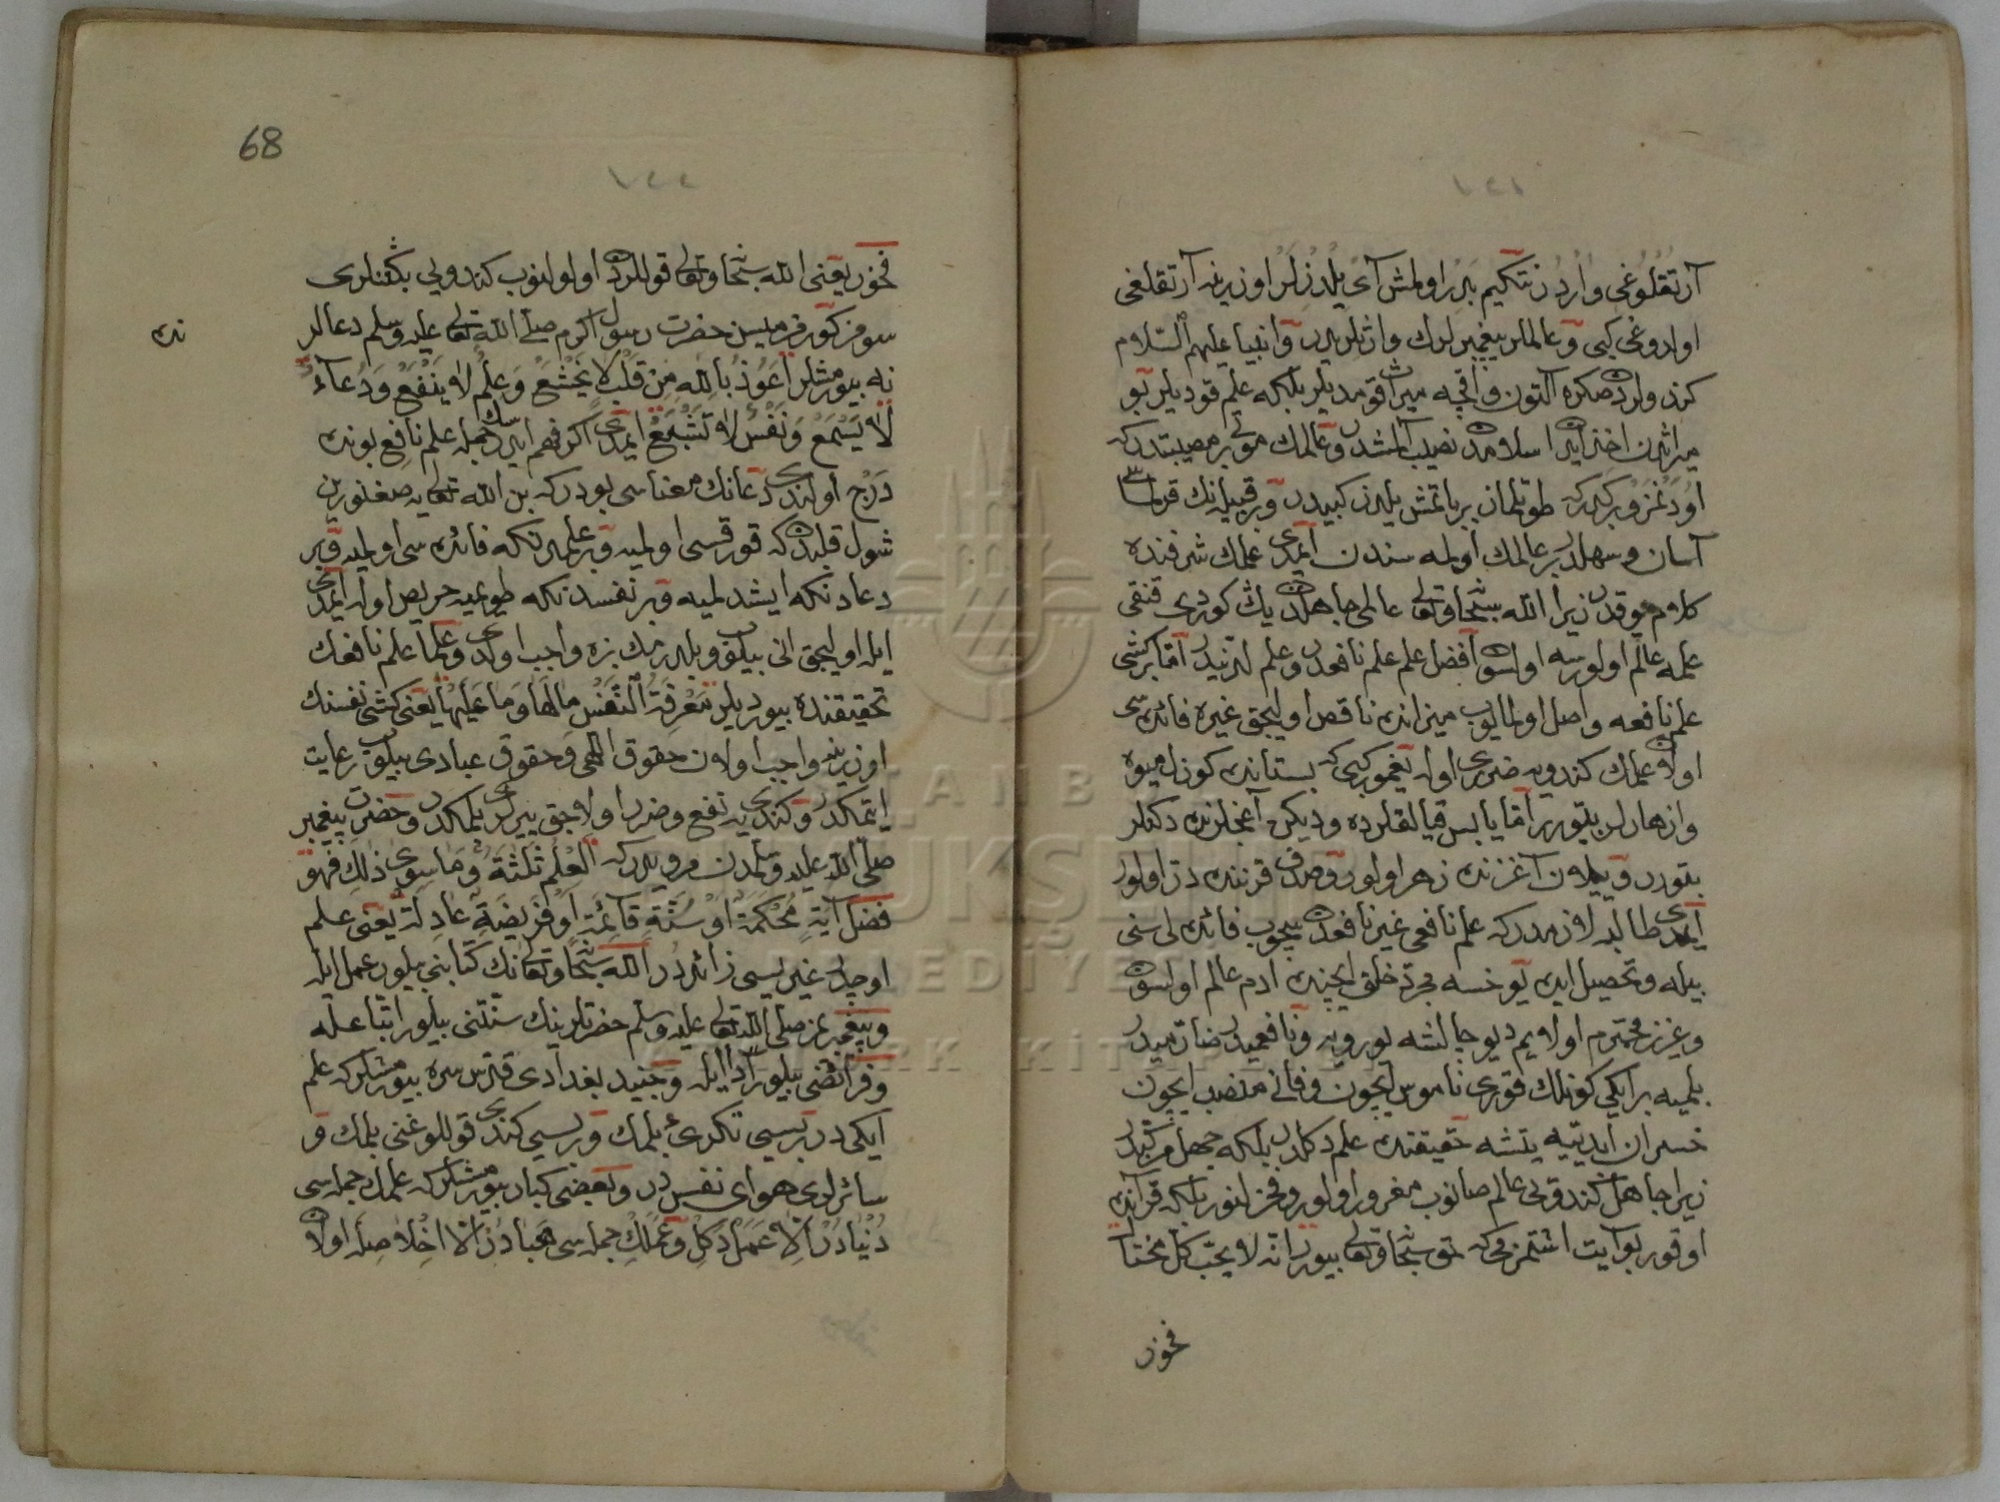 آرتقلوغی واردر نتکیم بدر اولمش آی یلدزلر اوزرینه آرتقلغی
اولدوغی کبی و عالملر پیغمبرلرك وارثلریدر و انبیا علیهم السلام
کندولردن صکره آلتون و آقچه میراث قومدیلر بلکه علم قودیلر بو
میراثدن اخذ ایدن اسلامدن نصیب آلمشدر و عالمك موتی بر مصیبتدر که
اودنمز و بر کدیکدر که طوتلماز بر باتمش یلدز کبیدر و بر قبیله نك قرلماسی
آسان و سهلدر بر عالمك اولمه سندن ایمدی علمك شرفنده
کلام یوقدر زیرا الله سبحانه و تعالی عالمی جاهلدن یك کوردی قنقی
علمه عالم اولورسه اولسون افضل علم علم نافعدر و علم لدنیدر اما بر کشی
علم نافعه واصل اولمایوب میزانده ناقص اولیجق غیره فائده سی
اولان علمك کندویه ضرری اولور یغمور کبی که بستانده کوزل میوه
و ازهارلر بتورر اما یابس قیالقلرده و دیکن آغاجلرنده دکنلر
بتورر و ییلان آغزنده زهر اولور و صدف قرننده در اولور
ایمدی طالبه لازمدر که علم نافعی غیر نافعدن سچوب فائده لی سنی
بیله و تحصیل ایده یوخسه مجرد خلق ایچنده ادم عالم اولسون
و عزیز محترم اولایم دیو چالشه یورویه و نافعمیدر ضارمیدر
بلمیه بر ایکی کونلك قوری ناموس ایچون و فانی منصب ایچون
خسران ابدیه یتشه حقیقتده علم دکلدر بلکه جهل مرکبدر
زیرا جاهل کندوی عالم صانوب مغرور اولور و فخرلنور بلکه قرآنده
اوقور بو آیت اشتمزمی که حق سبحانه و تعالی بیورر انه لا یحب کل مختال
فخور
68
١٤٤
فخور یعنی الله سبحانه و تعالی قوللردن اولولنوب کندویی بکنلری
سومز کورمزمیسن حضرت رسول اکرم صلی الله تعالی علیه وسلم دعالر
نده
نه بیورمشلر اعوذ بالله من قلب لا یخشع و علم لا ینفع و دعاء
لا یسمع و نفس لا تشبع ایمدی اکر فهم ایدرسك جمله علم نافع بونده
درج اولندی دعانك معناسی بودر که بن الله تعالی یه صغنورین
شول قلبدن که قورقسی اولمیه و بر علمدنکه فائده سی اولمیه و بر
دعادنکه ایشدلمیه و بر نفسدنکه طویمیه حریص اوله ایمدی
ایله اولیجق انی بیلوب و بلدرمك بزه واجب اولدی و علما علم نافعك
تحقیقنده بیوردیلر معرفة النفس مالها و ما علیها یعنی کشی نفسنك
اوزرینه واجب اولان حقوق اللهی و حقوق عبادی بیلوب رعایت
ایتمکدر و کندویه نفع و ضرر اولاجق ییرلری بلمکدر و حضرت پیغمبر
صلی الله علیه وسلمدن مرویدر که العلم ثلثة و ما سوی ذلك فهو
فضل آیة محکمة او سنة قائمة او فریضة عادلة یعنی علم
اوچدر غیریسی زائددر الله سبحانه و تعالی نك کتابنی بیلور عمل ایله
و پیغمبرمز صلی الله تعالی علیه وسلم حضرتلرینك سنتنی بیلور اتباعله
و فرائضی بیلور ادا ایله و جنید بغدادی قدس سره بیورمشلر که علم
ایکیدر بریسی تکری یی بلمك و بریسی کندی قوللوغنی بلمك و
سائرلری هوای نفسدر و بعضی کبار بیورمشلر که علمك جمله سی
دنیادر الا عمل دکل و عملك جمله سی هبادر الا اخلاصله اولان